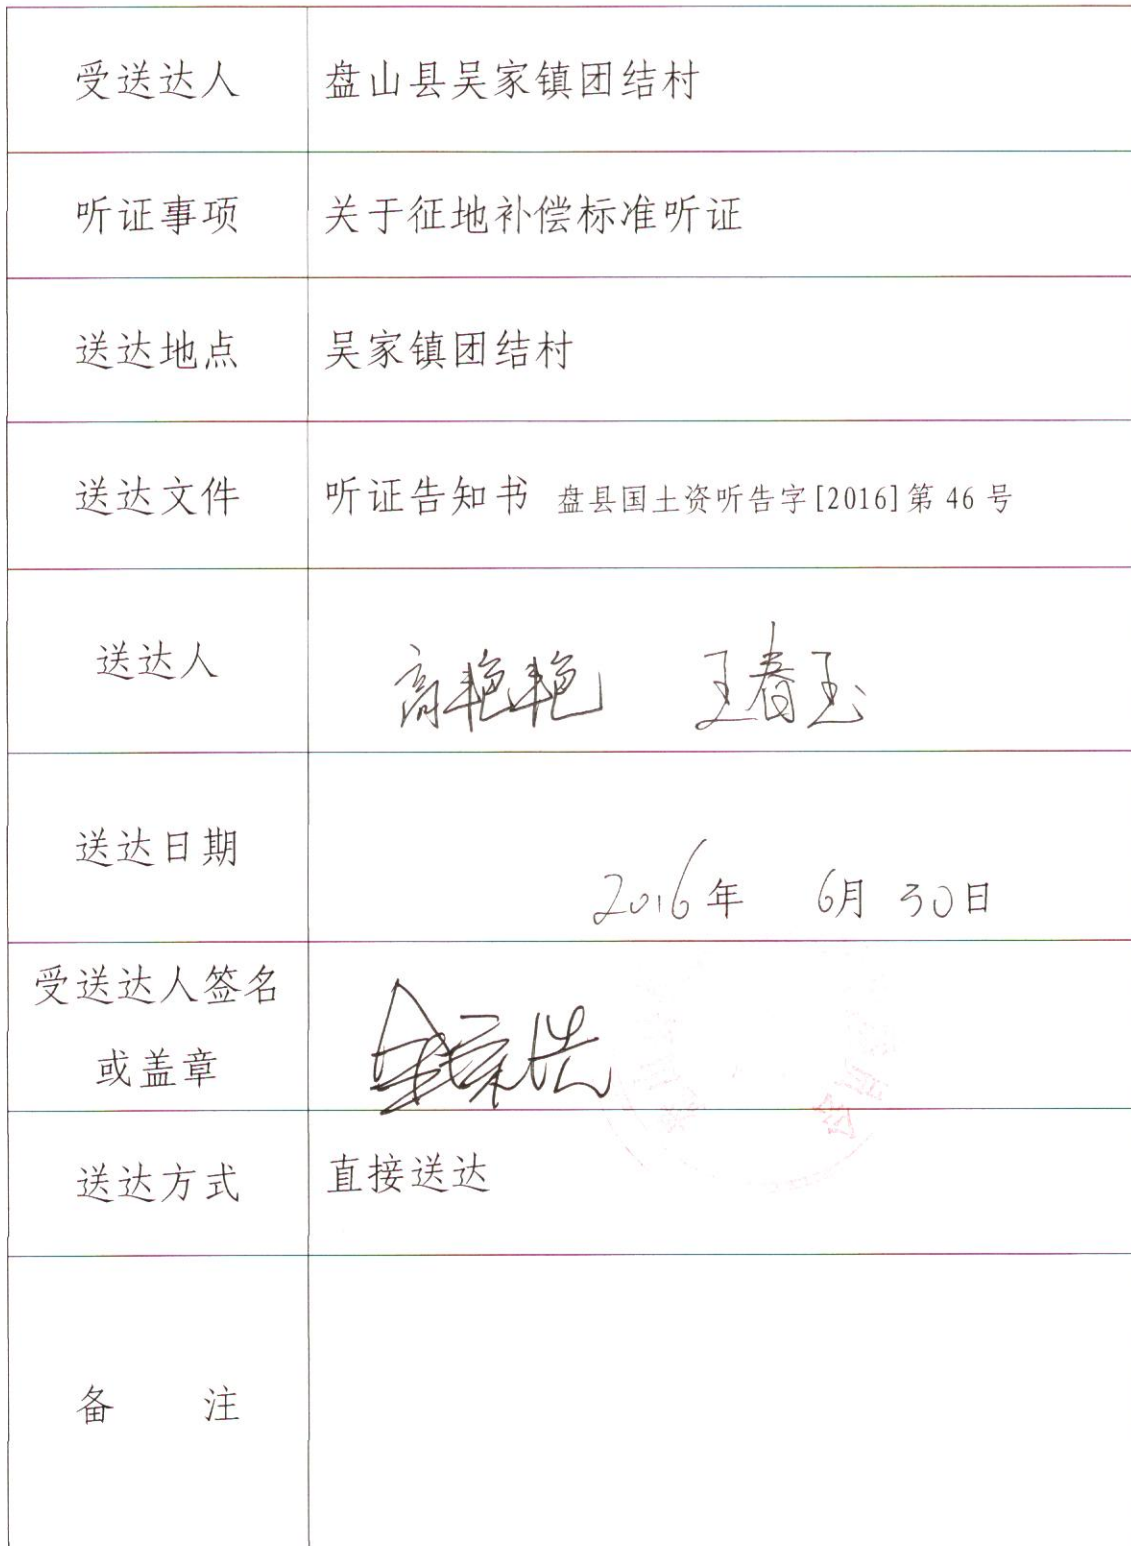 受送达人 盘山县吴家镇团结村
听证事项 关于征地补偿标准听证
送达地点 吴家镇团结村
送达文件 听证告知书 盘县国土资听告字[2016]第 46 号
送达人 高艳艳 王春玉
送达日期 2016年 6月 30日
受送达人签名
或盖章
送达方式 直接送达
备 注